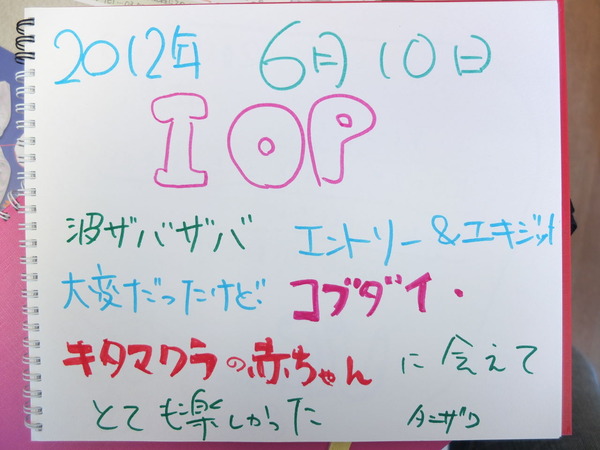 2012年 6月10日
IOP
波ザバザバ エントリー&エキジット
大変だったけど、コブダイ・
キタマクラの赤ちゃん に会えて
とても楽しかった タニザワ